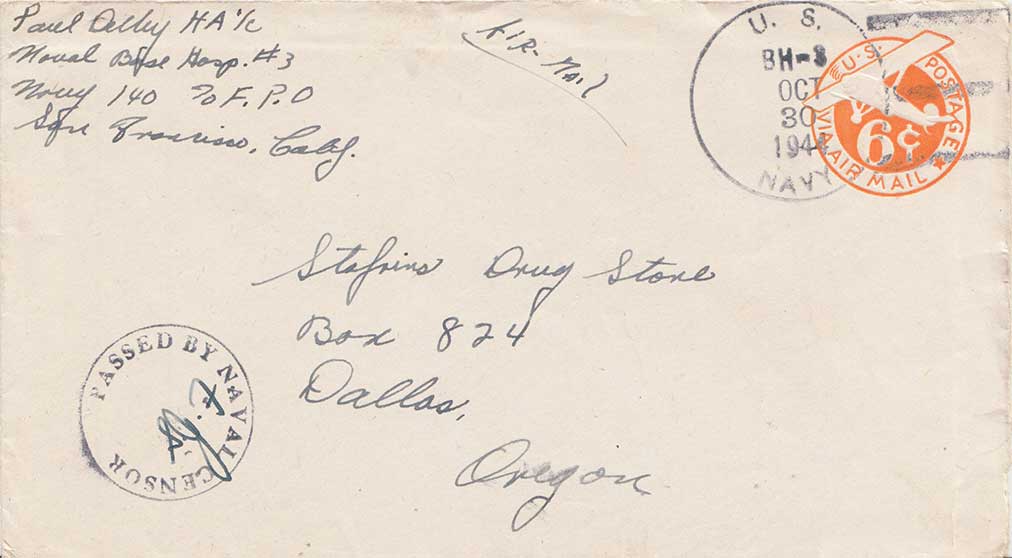 Paul Delby HA 1/c
Naval Base Hosp. #3
Navy 140 c/o F.P.O
San Francisco, Calif.
AIR-Mail
U. S.
BH-3
OCT
30
1944
NAVY
U.S. POSTAGE
6¢
VIA AIR MAIL
Stafrins Drug Store
Box 824
Dallas,
Oregon
PASSED BY NAVAL CENSOR